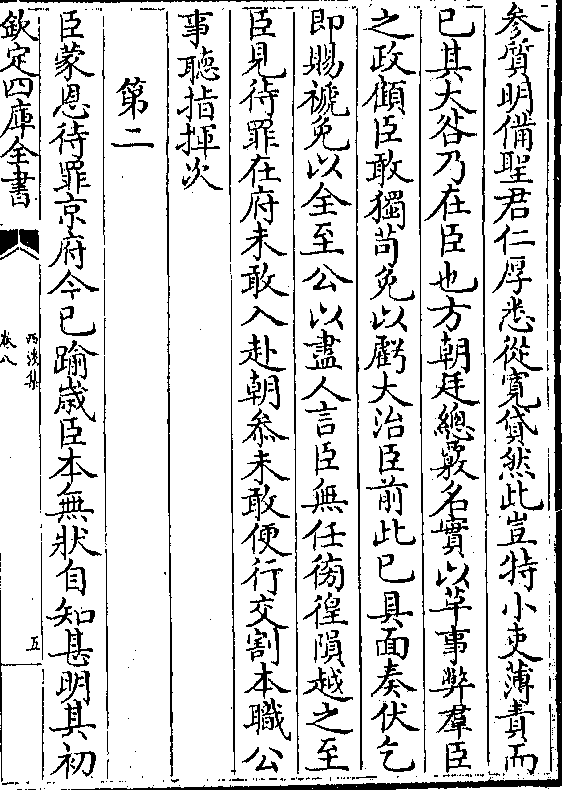 參質明備聖君仁厚悉從寛貸然此豈特小吏薄責而
已其大咎乃在臣也方朝廷總覈名實以革事弊羣臣
之政傾臣敢獨苟免以虧大治臣前此已具面奏伏乞
即賜褫免以全至公以盡人言臣無任徬徨隕越之至
臣見待罪在府未敢入赴朝叅未敢便行交割本職公
事聽指揮次
第二
臣蒙恩待罪京府今已踰歳臣本無狀自知甚明其初
欽定四庫全書
西溪集
卷八
五